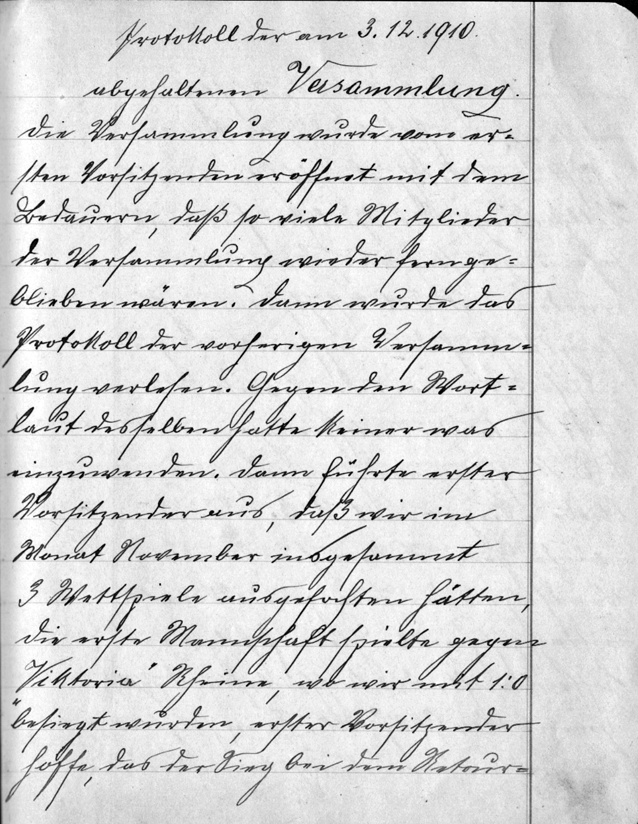 Protokoll der am 3.12.1910.
abgehaltenen Versammlung.
Die Versammlung wurde vom er=
sten Vorsitzenden eröffnet mit dem
Bedauern, daß so viele Mitglieder
der Versammlung wieder fernge=
blieben wären. Dann wurde das
Protokoll der vorherigen Versamm=
lung verlesen. Gegen den Wort=
laut desselben hatte keiner was
einzuwenden. Dann führte erster
Vorsitzender aus, daß wir im
Monat November insgesammt
3 Wettspiele ausgefochten hätten,
die erste Mannschaft spielte gegen
„Viktoria" Rheine, wo wir mit 1:0
besiegt wurden, erster Vorsitzender
hoffe, das der Sieg bei dem Retour=